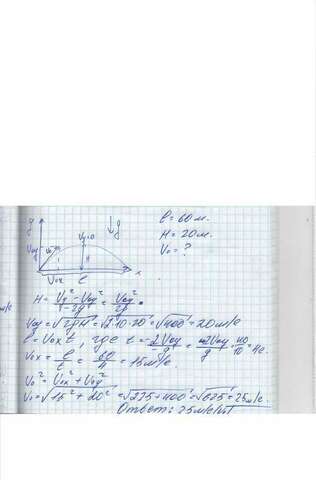 y
Vy=0
↓g
Voy
Vo
H
Vox
l
x
l = 60 м.
H = 20 м.
Vo = ?
H = (Vy² - Voy²)/(-2g) = Voy²/2g
Voy = √2gH = √2·10·20 = √400 = 20 м/с
l = Vox t, где t = 2Voy/g = 40/10 = 4с.
Vox = l/t = 60/4 = 15 м/с.
Vo² = Vox² + Voy²
Vo = √15² + 20² = √225 + 400 = √625 = 25 м/с.
Ответ: 25 м/с